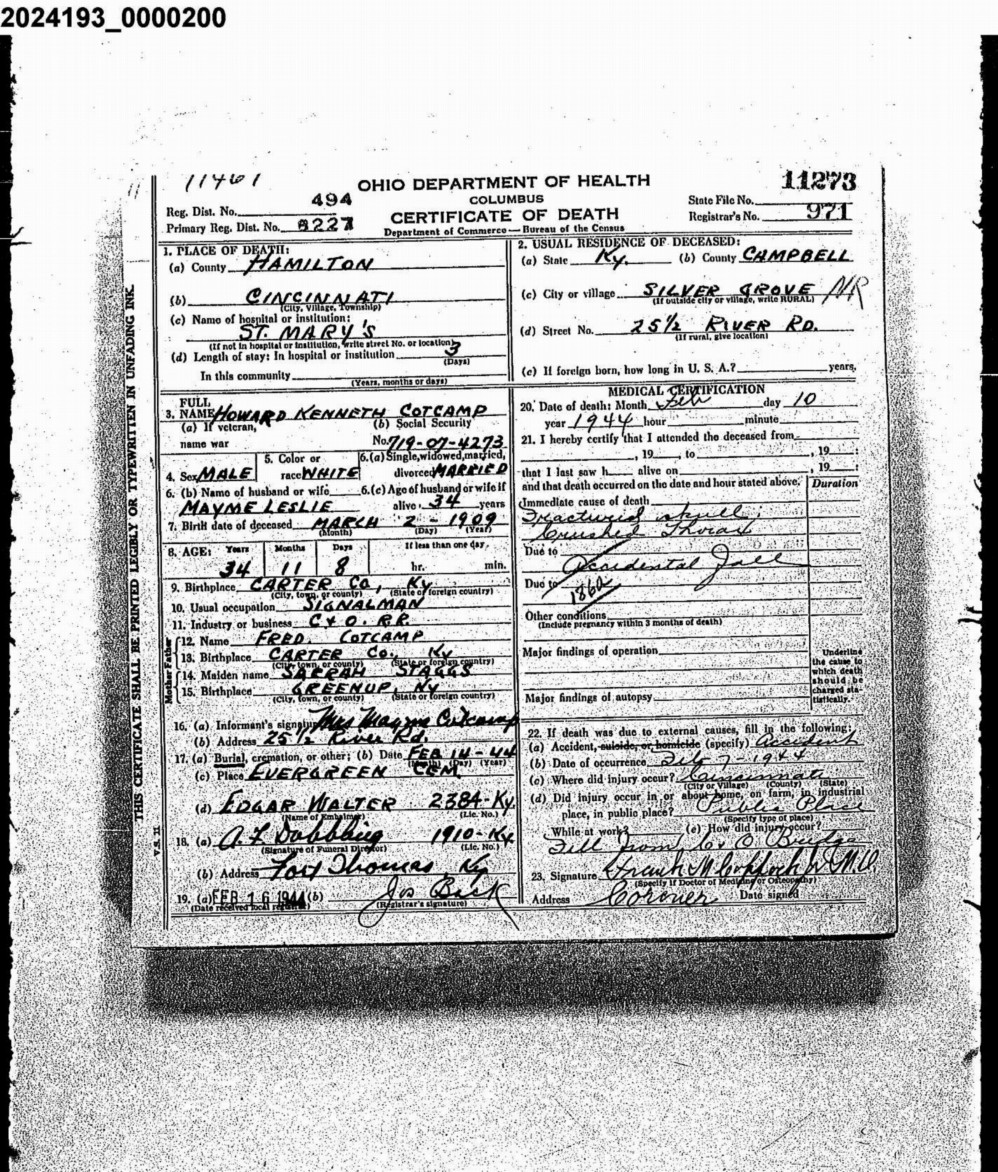 2024193_0000200
11461
OHIO DEPARTMENT OF HEALTH
COLUMBUS
CERTIFICATE OF DEATH
Department of Commerce — Bureau of the Census
11273
Reg. Dist. No. 494
Primary Reg. Dist. No. 8227
State File No.
Registrar's No. 971
THIS CERTIFICATE SHALL BE PRINTED LEGIBLY OR TYPEWRITTEN IN UNFADING INK.
V.S. 11
1. PLACE OF DEATH:
(a) County HAMILTON
(b) CINCINNATI
(City, Village, Township)
(c) Name of hospital or institution:
ST. MARY'S
(If not in hospital or institution, write street No. or location)
(d) Length of stay: In hospital or institution 3
(Days)
In this community
(Years, months or days)
2. USUAL RESIDENCE OF DECEASED:
(a) State Ky. (b) County CAMPBELL
(c) City or village SILVER GROVE NR
(If outside city or village, write RURAL)
(d) Street No. 25 1/2 RIVER RD.
(If rural, give location)
(e) If foreign born, how long in U. S. A.? years.
FULL
3. NAME HOWARD KENNETH COTCAMP
(a) If veteran, (b) Social Security
name war No. 719-07-4273
4. Sex MALE
5. Color or
race WHITE
6. (a) Single, widowed, married,
divorced MARRIED
6. (b) Name of husband or wife 6. (c) Age of husband or wife if
MAYME LESLIE alive 34 years
7. Birth date of deceased MARCH 2 - 1909
(Month) (Day) (Year)
8. AGE: Years Months Days If less than one day
34 11 8 hr. min.
9. Birthplace CARTER CO, Ky
(City, town, or county) (State or foreign country)
10. Usual occupation SIGNALMAN
11. Industry or business C & O. RR.
Father
12. Name FRED. COTCAMP
13. Birthplace CARTER CO., Ky
(City, town, or county) (State or foreign country)
Mother
14. Maiden name SARRAH STAGGS
15. Birthplace GREENUP, Ky
(City, town, or county) (State or foreign country)
16. (a) Informant's signature Mrs Mayme Cotcamp
(b) Address 25 1/2 River Rd.
17. (a) Burial, cremation, or other; (b) Date FEB 14-44
(Month) (Day) (Year)
(c) Place EVERGREEN CEM
(d) EDGAR WALTER 2384-Ky.
(Name of Embalmer) (Lic. No.)
18. (a) A. F. Dobbling 1910-Ky.
(Signature of Funeral Director) (Lic. No.)
(b) Address Fort Thomas, Ky
19. (a) FEB 16 1944 (b)
(Date received local registrar) (Registrar's signature)
MEDICAL CERTIFICATION
20. Date of death: Month Feb day 10
year 1944 hour minute
21. I hereby certify that I attended the deceased from
, 19 , to , 19 ;
that I last saw h alive on , 19 ;
and that death occurred on the date and hour stated above.
Duration
Immediate cause of death
Fractured skull;
Crushed Thorax
Due to
Accidental Fall
Due to
186a
Other conditions
(Include pregnancy within 3 months of death)
Major findings of operation
Major findings of autopsy
Underline
the cause to
which death
should be
charged sta-
tistically.
22. If death was due to external causes, fill in the following:
(a) Accident, suicide, or homicide (specify) Accident
(b) Date of occurrence Feb 7-1944
(c) Where did injury occur? Cincinnati
(City or Village) (County) (State)
(d) Did injury occur in or about home, on farm, in industrial
place, in public place? Public Place
(Specify type of place)
While at work? (e) How did injury occur?
Fell from C & O Bridge
23. Signature Frank M Coppock Jr M.D.
(Specify if Doctor of Medicine or Osteopathy)
Address Coroner Date signed